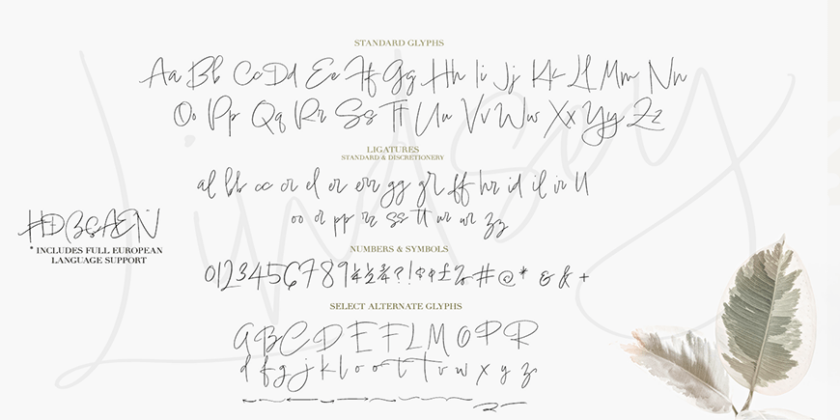 STANDARD GLYPHS
Aa Bb Cc Dd Ee Ff Gg Hh Ii Jj Kk Ll Mm Nn
Oo Pp Qq Rr Ss Tt Uu Vv Ww Xx Yy Zz
LIGATURES
STANDARD & DISCRETIONERY
al bb cc cr el er err gg gr ff hr id il ir ll
oo or pp rr ss tt ur wr zz
* INCLUDES FULL EUROPEAN
LANGUAGE SUPPORT
NUMBERS & SYMBOLS
0123456789 ¼ ½ ¾ ? ! £ % # @ * & & +
SELECT ALTERNATE GLYPHS
a B C D E F L M O P R
d f g j k l o o r t T r w x y z
Lindsey